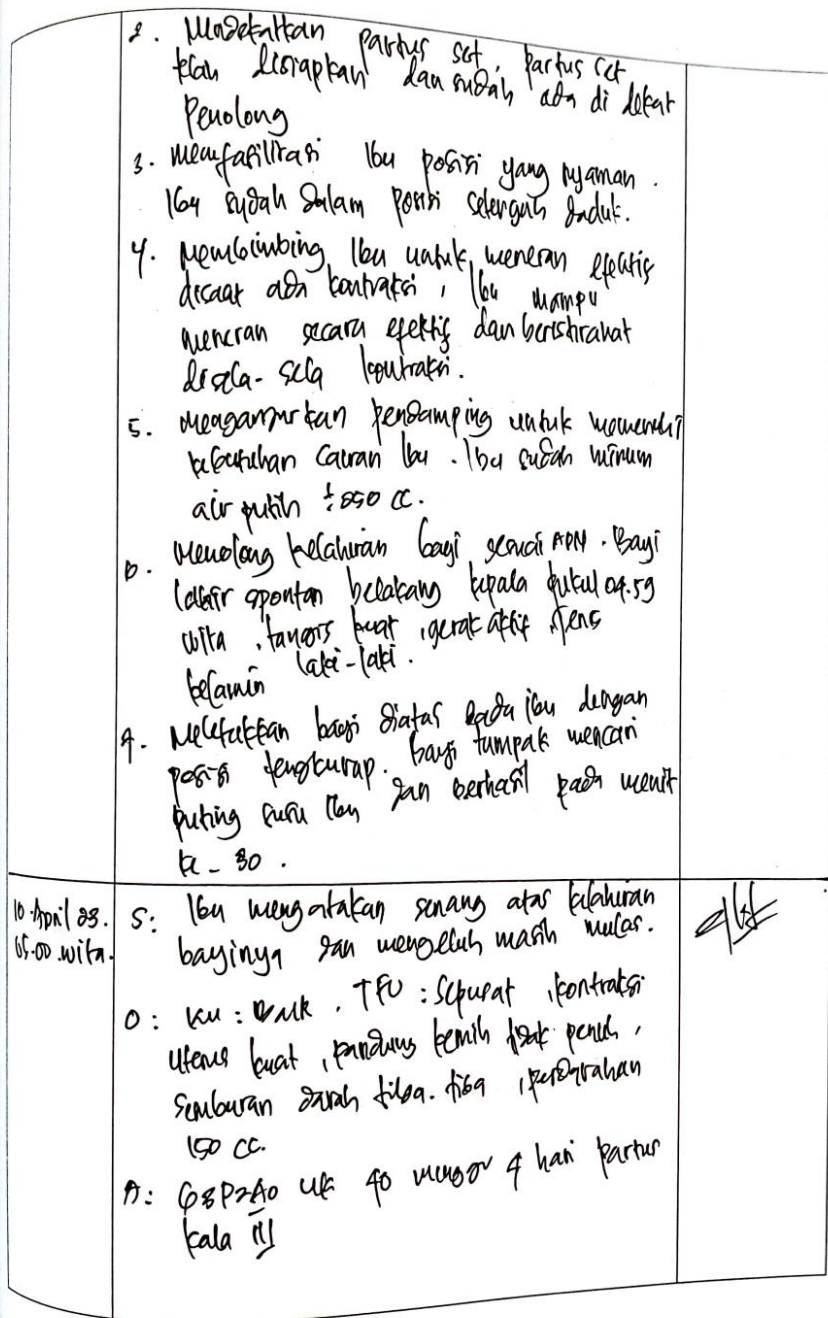 2. Mendekatkan partus set, partus set
telah disiapkan dan sudah ada di dekat
Penolong
3. Memfasilitasi Ibu posisi yang nyaman.
Ibu sudah dalam posisi setengah duduk.
4. Membimbing Ibu untuk meneran efektif
disaat ada kontraksi, Ibu mampu
meneran secara efektif dan beristirahat
disela-sela kontraksi.
5. Menganjurkan pendamping untuk memenuhi
kebutuhan cairan Ibu. Ibu sudah minum
air putih ± cc.
6. Menolong kelahiran bayi sesuai APN. Bayi
lahir spontan belakang kepala pukul 04.59
wita, tangis kuat, gerak aktif, jenis
kelamin laki-laki.
7. Meletakkan bayi diatas pada ibu dengan
posisi tengkurap. bayi tampak mencari
puting susu Ibu dan berhasil pada menit
ke-30.
10 April 23.
05.00 wita.
S: Ibu mengatakan senang atas kelahiran
bayinya dan mengeluh masih mules.
O: KU: Baik, TFU: Sepusat, kontraksi
uterus kuat, kandung kemih tidak penuh,
Semburan darah tiba-tiba, perdarahan
150 cc.
A: G3P2A0 UK 40 minggu 4 hari Partus
kala III